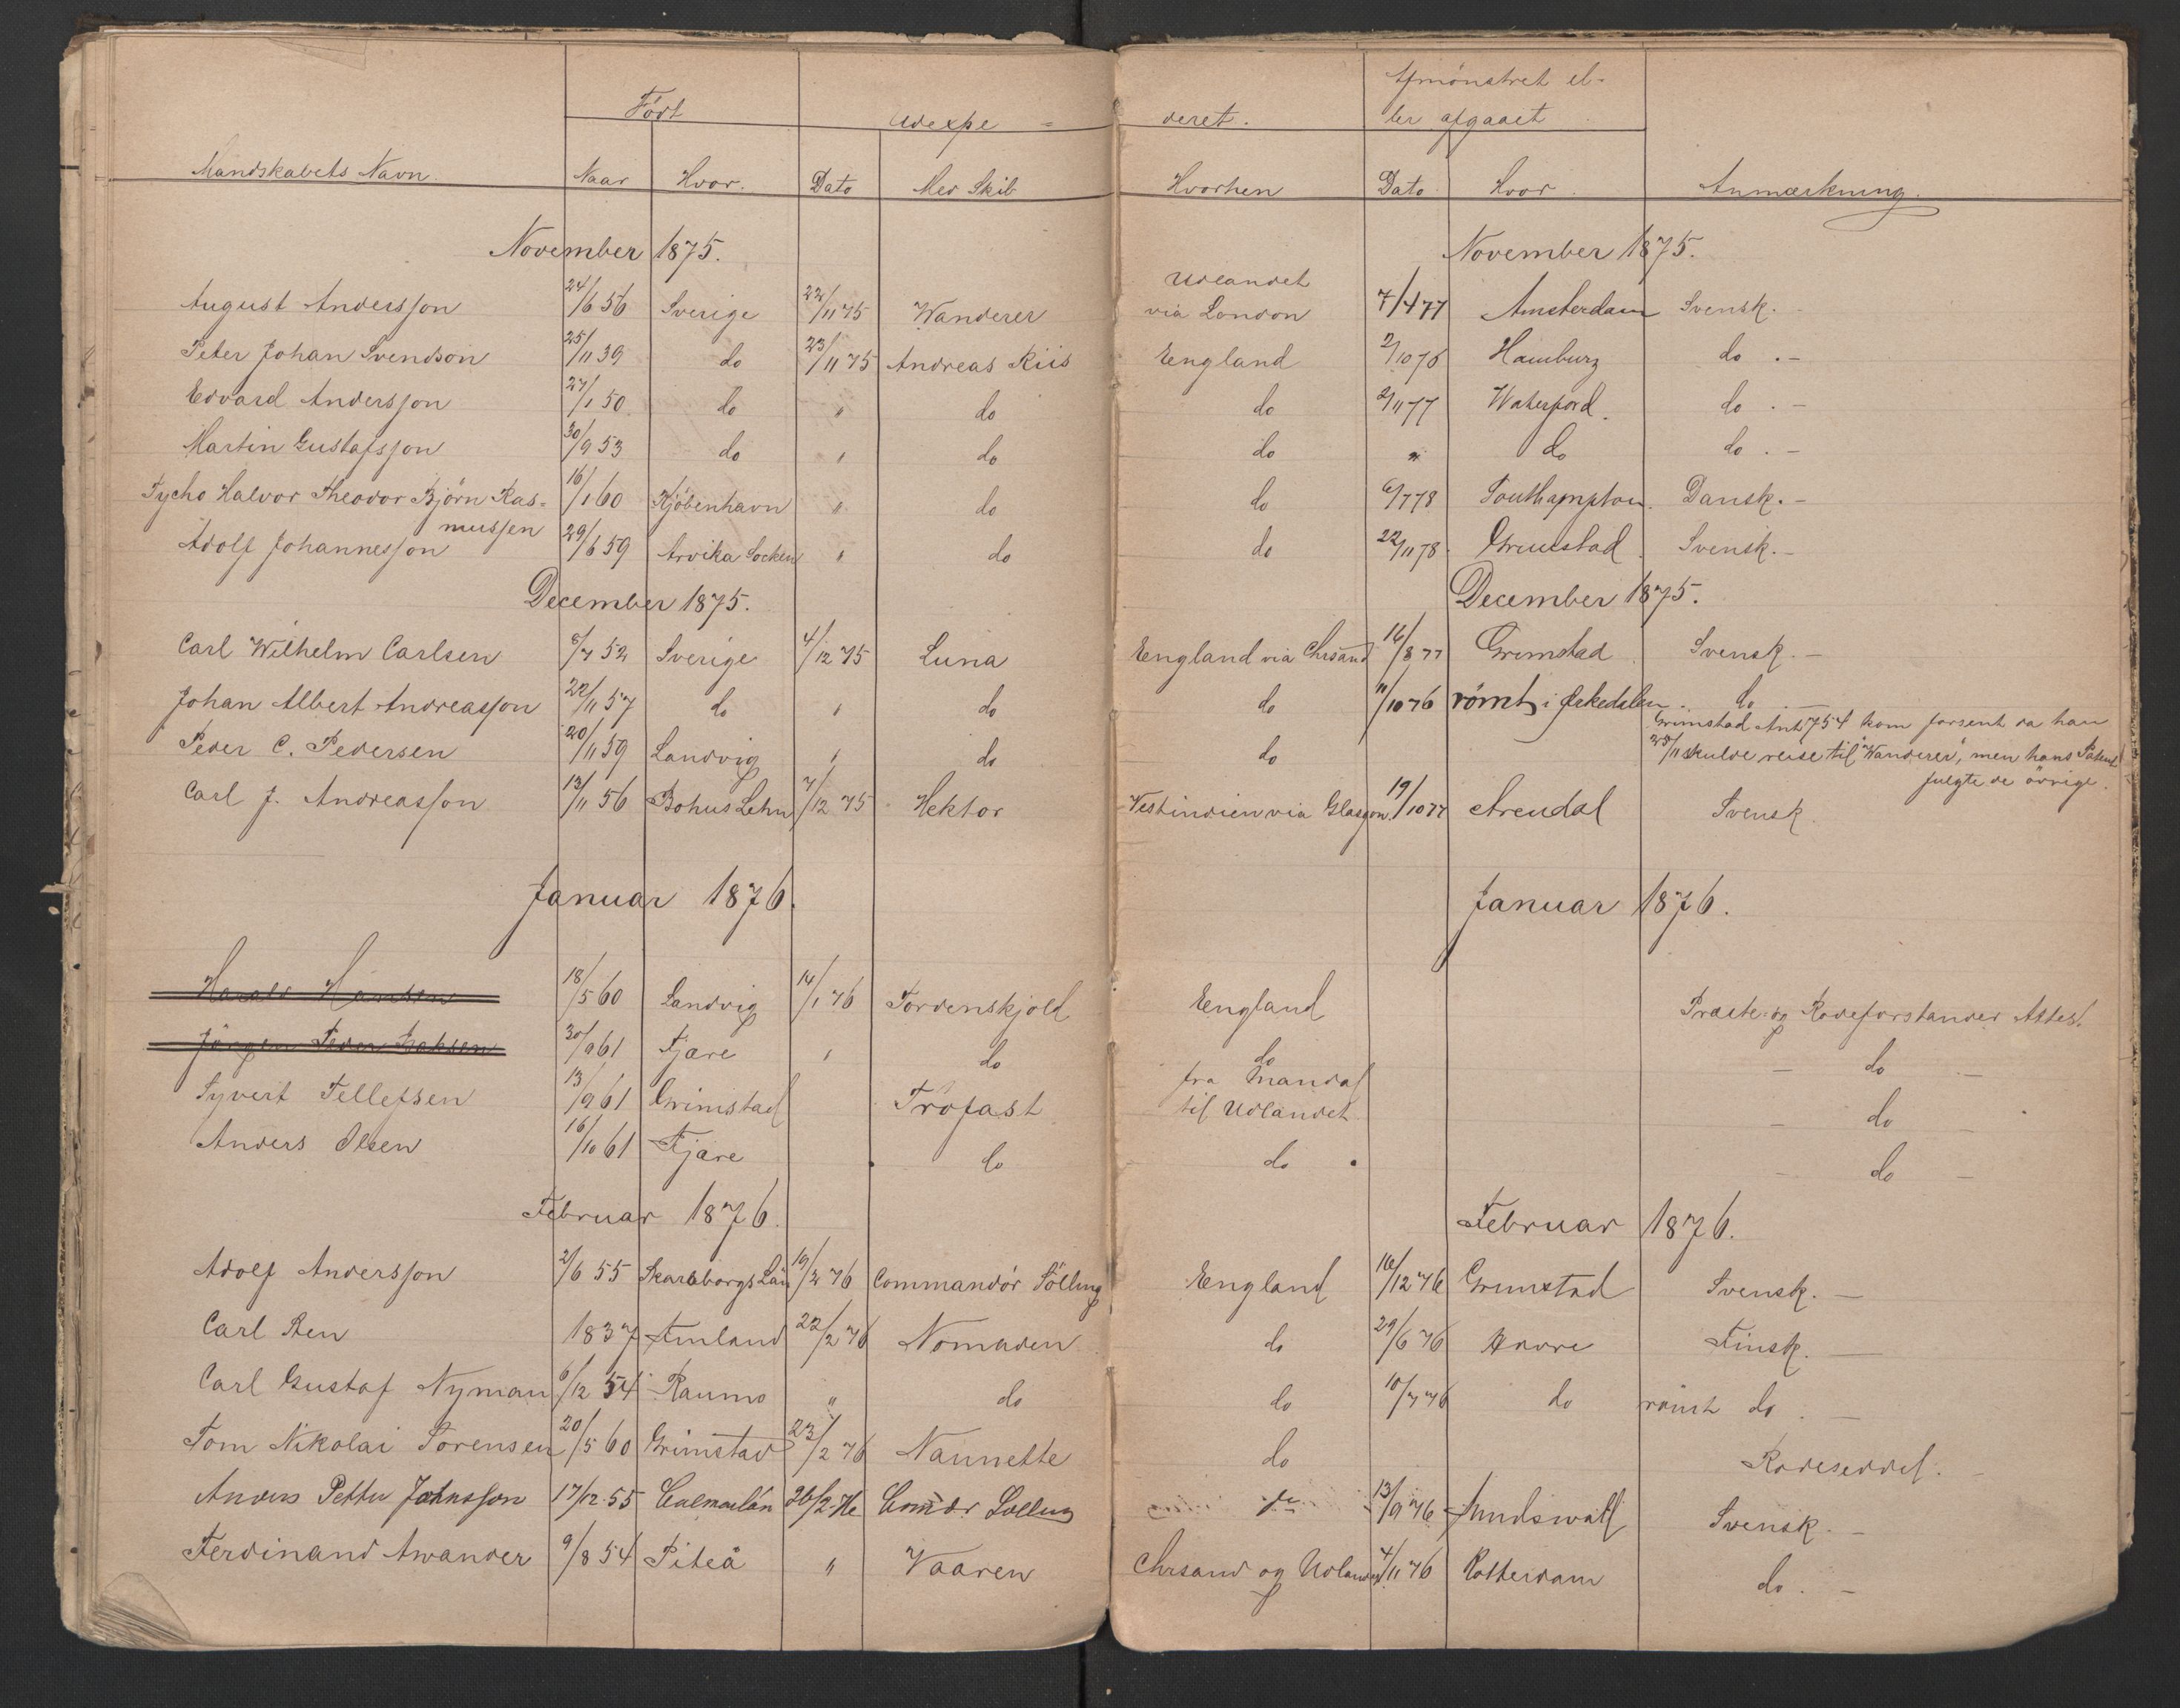 Født
Udexpe =
deret.
Afmønstret el-
ler afgaaet
Mandskabets Navn. Naar Hvor. Dato Med Skib Hvorhen Dato Hvor. Anmærkning.
November 1875. November 1875.
Udlandet
August Andersson 24/6 56 Sverige 22/11 75 Wanderer via London 7/4 77 Amsterdam Svensk. -
Peter Johan Svendson 25/11 39 do 23/11 75 Andreas Riis England 2/10 76 Hamburg do . -
Edvard Andersson 27/1 50 do " do do 2/11 77 Waterford. do . -
Martin Gustafsson 30/9 53 do " do do " do do . -
Tycho Halvor Theodor Bjørn Ras= 16/1 60 Kjøbenhavn " do do 6/7 78 Southampton. Dansk. -
mussen
Adolf Johannesson 29/6 59 Arvika Socken " do do 22/11 78. Grimstad. Svensk. -
December 1875. December 1875.
Carl Wilhelm Carlsen 8/7 52 Sverige 4/12 75 Luna England via Chrsand 16/8 77 Grimstad Svensk. -
Johan Albert Andreasson 22/11 57 do " do do 11/10 76 römt i do . -
Grimstad Anh 754 kom forsent da han
Peder C. Pedersen 20/11 59 Landvig " do do 23/11 skulde reise til "Wanderer", men hans Patent
fulgte de øvrige.
Carl J. Andreasson 13/11 56 Bohus Lehn 7/12 75 Hektor Vestindien via Glasgow. 19/10 77 Arendal Svensk
Januar 1876. Januar 1876.
Harald Hansen 18/5 60 Landvig 14/1 76 Tordenskjold England Præste- og Rodeforstander Attest.
Jörgen Peder Isaksen 30/9 61 Fjære " do do - do -
fra Mandal
Syvert Tellefsen 13/9 61 Grimstad Trofast til Udlandet. - do .
Anders Olsen 16/10 61 Fjære . do do . - do -
Februar 1876. Februar 1876.
Adolf Andersson 2/6 55 Skaraborgs Län 19/2 76 Commandör Sölling England 16/12 76 Grimstad Svensk. -
Carl Ren 1837 Finland 22/2 76 Nomaden do 29/6 76 Havre Finsk. -
Carl Gustaf Nyman 6/12 54 Raumo " do do 10/7 76 do römt do . -
Tom Nikolai Sørensen 20/5 60 Grimstad 23/2 76 Nannette do Rodeseddel. -
Anders Petter Johnsson 17/12 55 Calmarlän 26/2-76 Comdr. Sølling do 13/9 76 Sundswall Svensk. -
Ferdinand Awander 9/8 54 Piteå " Vaaren Chrsand og Udlandet 4/11 76 Rotterdam do . -